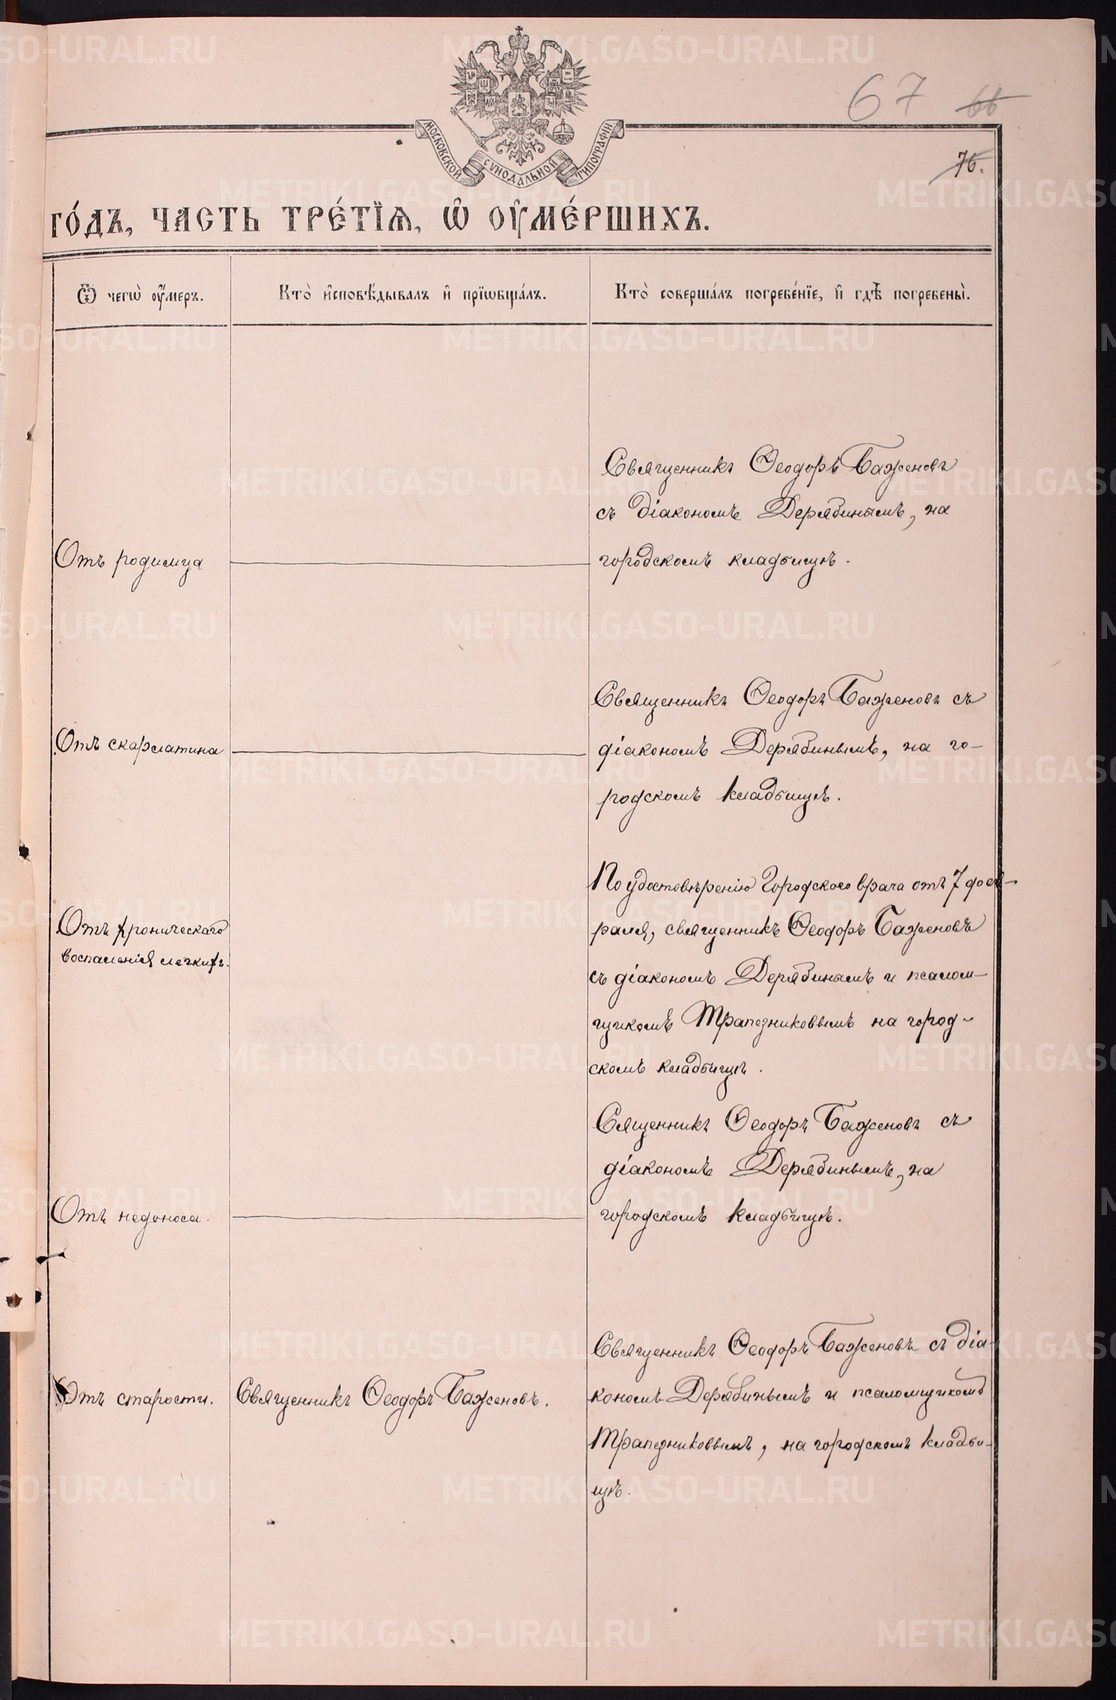 67 66
76.
МОСКОВСКОЙ СѴНОДАЛЬНОЙ ТИПОГРАФІИ
го́дъ, часть тре́тїѧ, ѽ оу҆ме́ршихъ.
Ѿ чегѡ̀ оу҆́меръ.
Кто̀ и҆сповѣ́дывалъ и҆ прїѡбща́лъ.
Кто̀ соверша́лъ погребе́нїе, и҆ гдѣ̀ погребены̀.
Отъ родимца
Священникъ Ѳеодоръ Баженовъ
съ діакономъ Дерябинымъ, на
городскомъ кладбищѣ.
Отъ скарлатина
Священникъ Ѳеодоръ Баженовъ съ
діакономъ Дерябинымъ, на го-
родскомъ кладбищѣ.
Отъ хроническаго
воспаленія легкихъ.
По удостовѣренію Городского врача отъ 7 фев-
раля, священникъ Ѳеодоръ Баженовъ
съ діакономъ Дерябинымъ и псалом-
щикомъ Трапезниковымъ на город-
скомъ кладбищѣ.
Отъ недоноса.
Сященникъ Ѳеодоръ Баженовъ съ
діакономъ Дерябинымъ, на
городскомъ кладбищѣ.
Отъ старости.
Священникъ Ѳеодоръ Баженовъ.
Священникъ Ѳеодоръ Баженовъ съ діа-
кономъ Дерябинымъ и псаломщикомъ
Трапезниковымъ, на городскомъ кладби-
щѣ.
METRIKI.GASO-URAL.RU